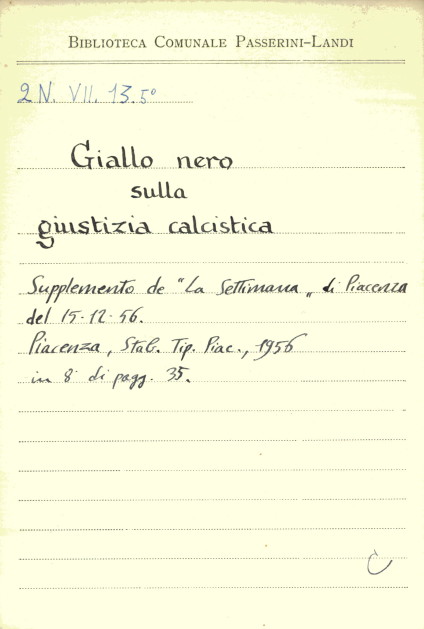 BIBLIOTECA COMUNALE PASSERINI-LANDI
2 N. VII. 13.5°
Giallo nero
sulla
giustizia calcistica
Supplemento de "La Settimana„ di Piacenza
del 15-12-56.
Piacenza, Stab. Tip. Piac., 1956
in 8° di pagg. 35.
C